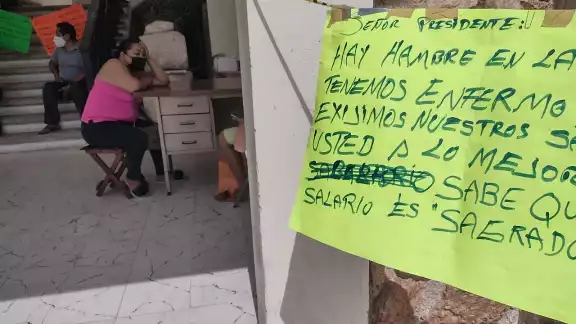 SEÑOR PRESIDENTE:
HAY HAMBRE EN LA
TENEMOS ENFERMO
EXIJIMOS NUESTROS SA
USTED A LO MEJOR
SABE QU
SALARIO ES "SAGRADO